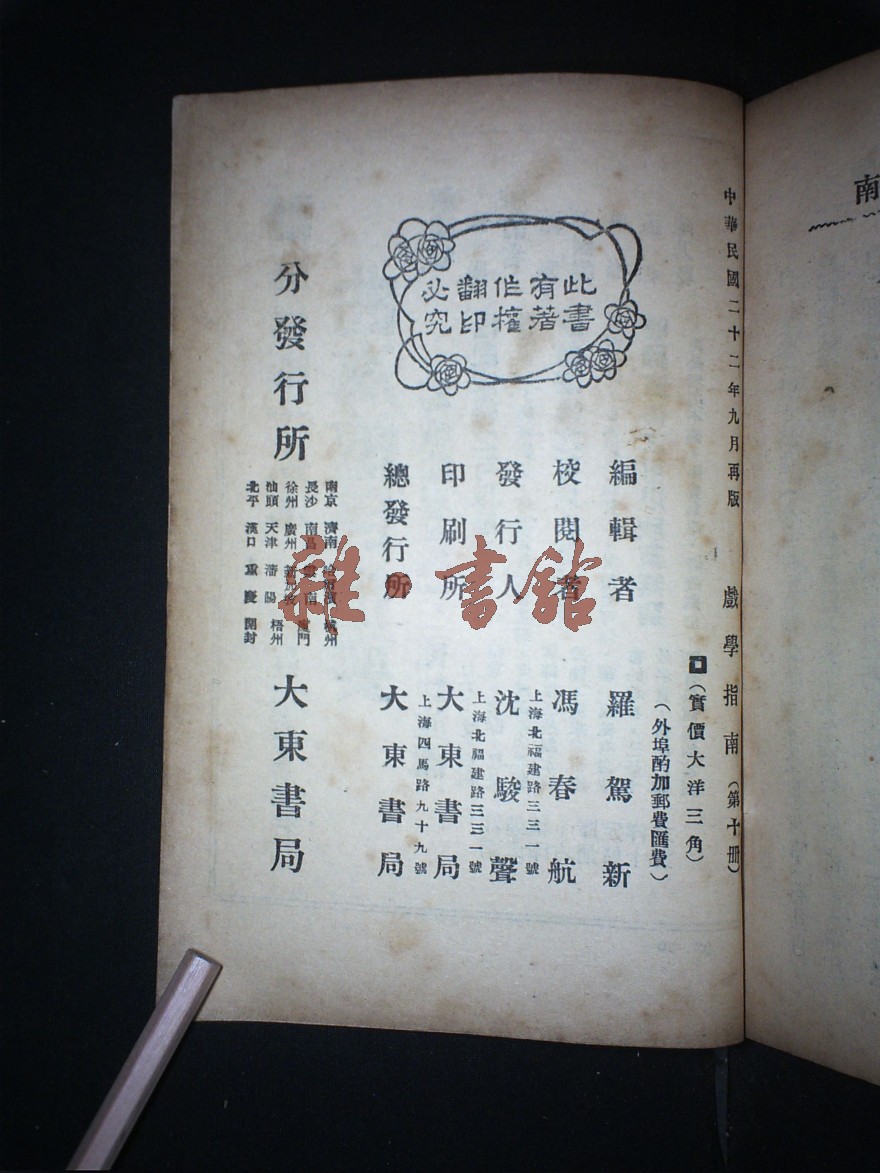 南
中華民國二十二年九月再版
戲學指南（第十冊）
（實價大洋三角）
（外埠酌加郵費匯費）
此書
有著
作權
翻印
必究
編輯者 羅駕新
校閱者 馮春航
上海北福建路三三一號
發行人 沈駿聲
上海北福建路三三一號
印刷所 大東書局
上海四馬路九十九號
總發行所 大東書局
南京 濟南 杭州
長沙 南昌 南 廈門
徐州 廣州 梧州
汕頭 天津 瀋陽
北平 漢口 重慶 開封
分發行所 大東書局
雜·書館